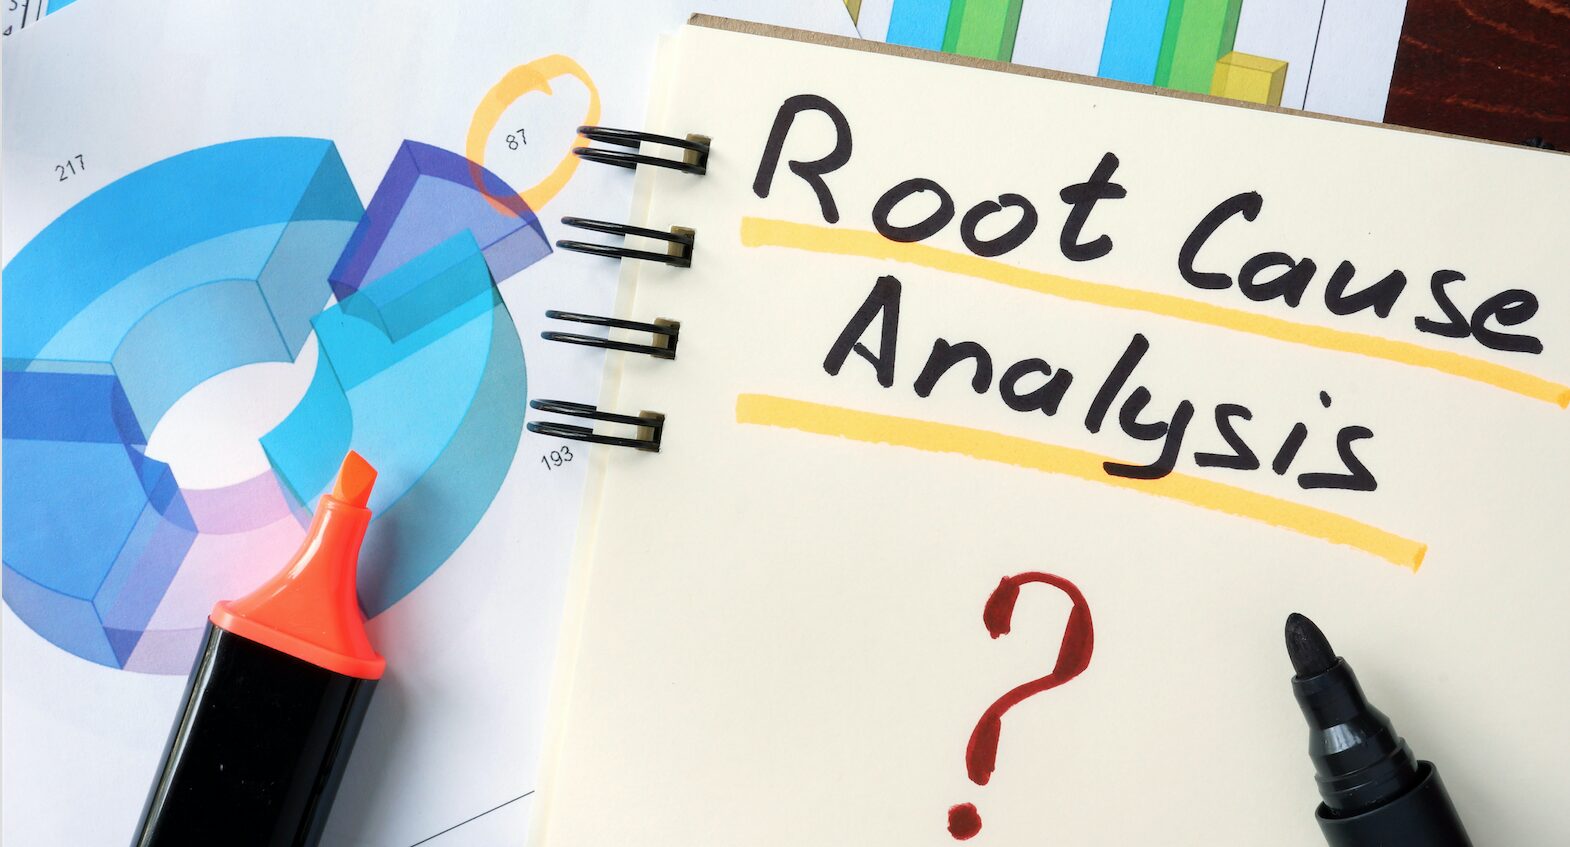 217
87
193
Root Cause
Analysis
?